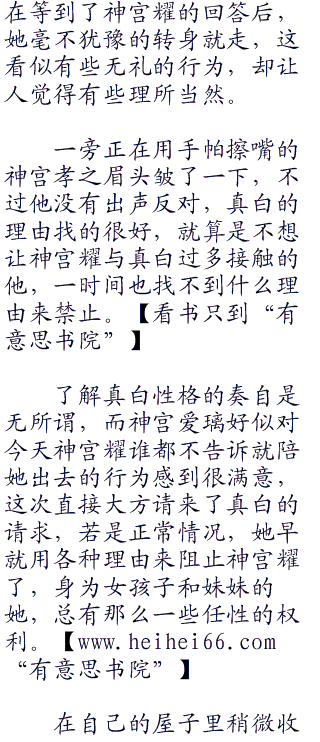 在等到了神宫耀的回答后，
她毫不犹豫的转身就走，这
看似有些无礼的行为，却让
人觉得有些理所当然。
一旁正在用手帕擦嘴的
神宫孝之眉头皱了一下，不
过他没有出声反对，真白的
理由找的很好，就算是不想
让神宫耀与真白过多接触的
他，一时间也找不到什么理
由来禁止。【看书只到“有
意思书院”】
了解真白性格的奏自是
无所谓，而神宫爱璃好似对
今天神宫耀谁都不告诉就陪
她出去的行为感到很满意，
这次直接大方请来了真白的
请求，若是正常情况，她早
就用各种理由来阻止神宫耀
了，身为女孩子和妹妹的
她，总有那么一些任性的权
利。【www.heihei66.com
“有意思书院”】
在自己的屋子里稍微收